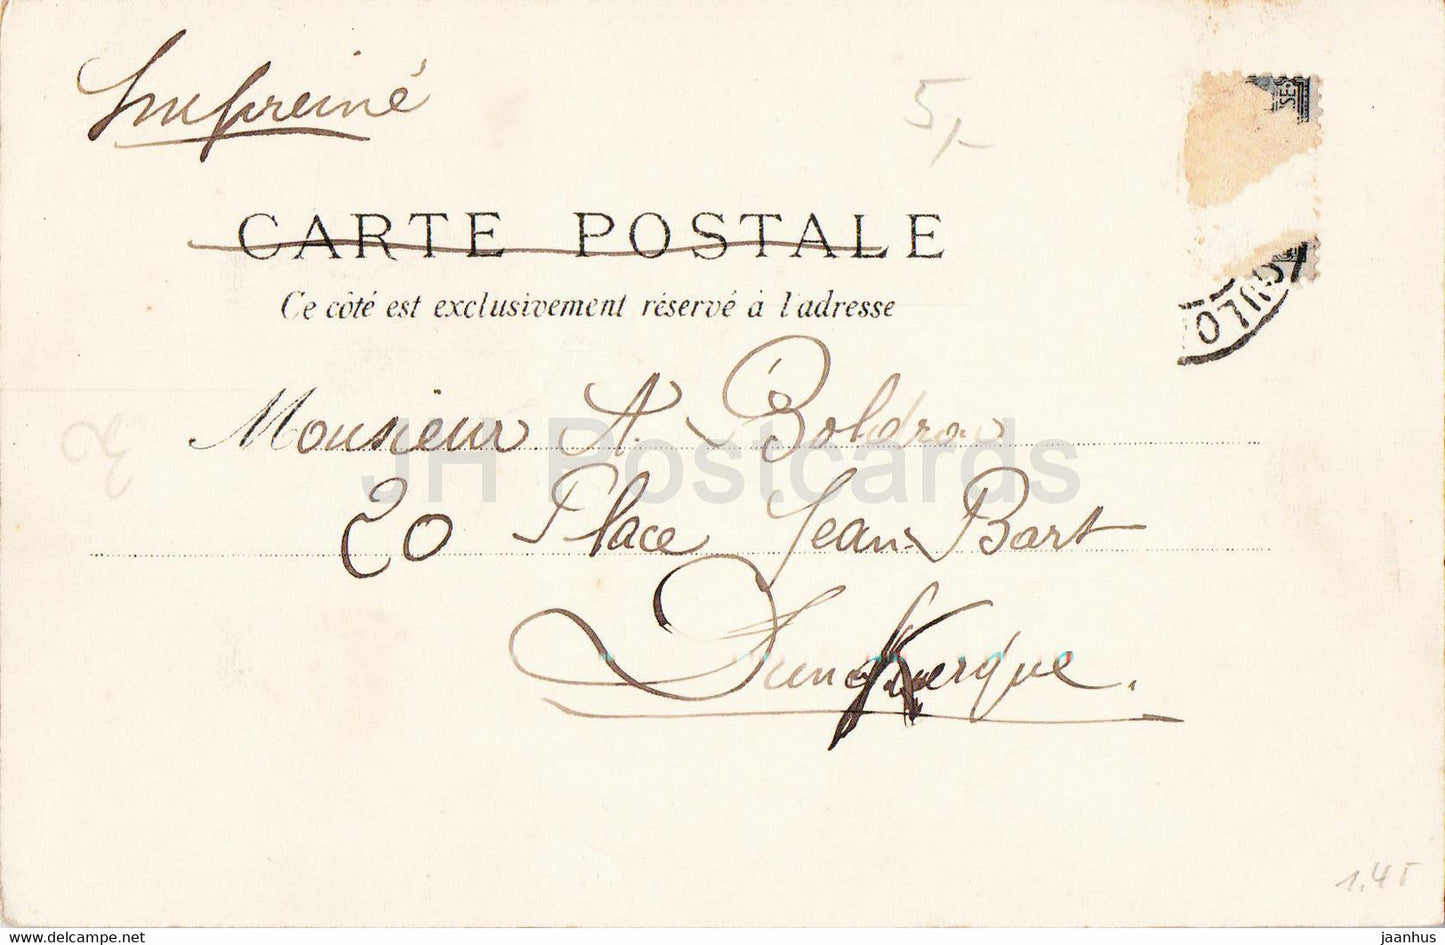 Impreimé
5,-
SE
CARTE POSTALE
Ce côté est exclusivement réservé à l'adresse
Monsieur A. Boldron
JH Postcards
20 Place Jean-Bart
Dunkerque.
1.45
www.jhpostcard.com
jaanhus